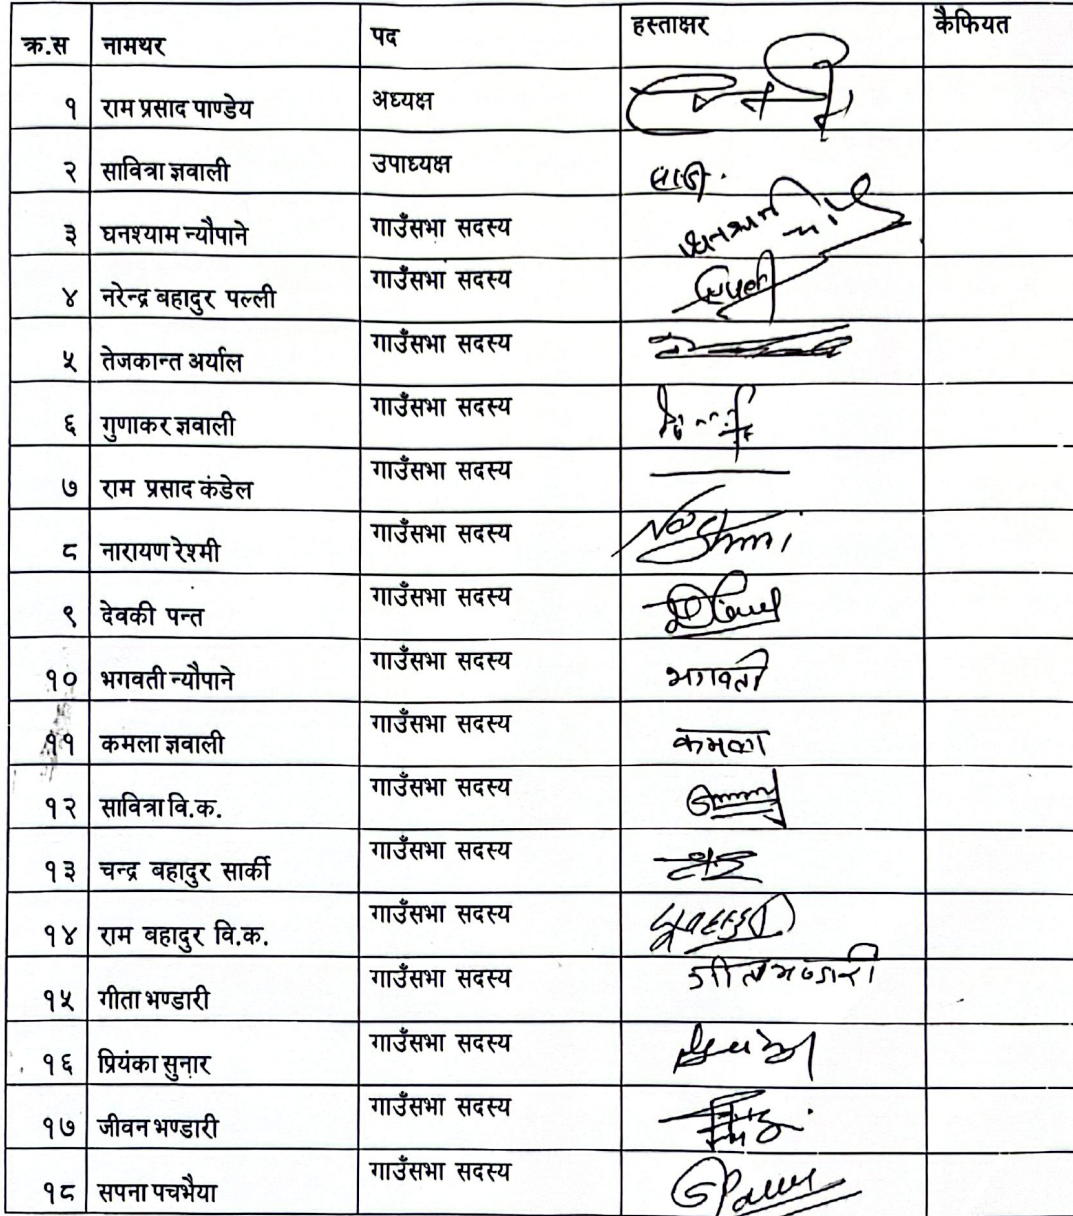 क्र.स नामथर पद हस्ताक्षर कैफियत
१ राम प्रसाद पाण्डेय अध्यक्ष
२ सावित्रा ज्ञवाली उपाध्यक्ष
३ घनश्याम न्यौपाने गाउँसभा सदस्य
४ नरेन्द्र बहादुर पल्ली गाउँसभा सदस्य
५ तेजकान्त अर्याल गाउँसभा सदस्य
६ गुणाकर ज्ञवाली गाउँसभा सदस्य
७ राम प्रसाद कंडेल गाउँसभा सदस्य
८ नारायण रेश्मी गाउँसभा सदस्य
९ देवकी पन्त गाउँसभा सदस्य
१० भगवती न्यौपाने गाउँसभा सदस्य भगवती
११ कमला ज्ञवाली गाउँसभा सदस्य कमला
१२ सावित्रा वि.क. गाउँसभा सदस्य
१३ चन्द्र बहादुर सार्की गाउँसभा सदस्य
१४ राम बहादुर वि.क. गाउँसभा सदस्य
१५ गीता भण्डारी गाउँसभा सदस्य गीता भण्डारी
१६ प्रियंका सुनार गाउँसभा सदस्य
१७ जीवन भण्डारी गाउँसभा सदस्य
१८ सपना पचभैया गाउँसभा सदस्य